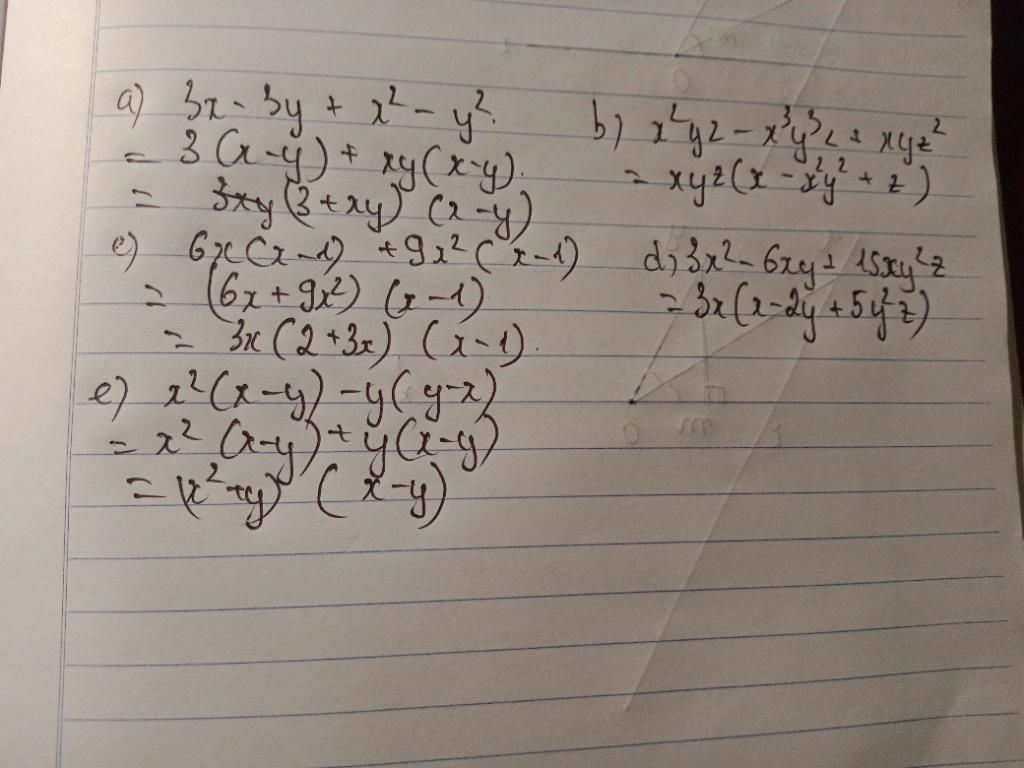 a) 3x - 3y + x² - y².
= 3(x-y) + xy(x-y).
= (3+xy) (x-y)
b) x²yz - x³y³z + xyz²
= xyz(x - x²y² + z)
c) 6x(x-1) + 9x²(x-1)
= (6x+9x²) (x-1)
= 3x(2+3x) (x-1).
d) 3x² - 6xy + 15xy²z
= 3x(x-2y+5y²z)
e) x²(x-y) - y(y-x)
= x² (x-y) + y(x-y)
= (x²+y) (x-y)